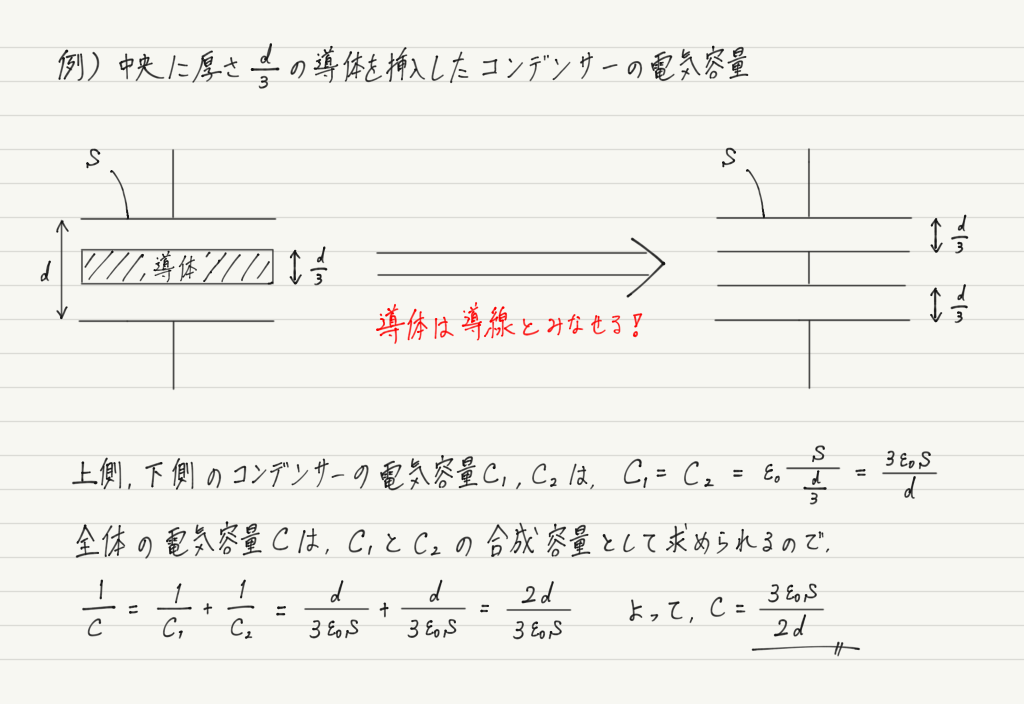 例）中央に厚さd/3の導体を挿入したコンデンサーの電気容量
S
d
導体
d/3
導体は導線とみなせる！
S
d/3
d/3
上側，下側のコンデンサーの電気容量C₁，C₂は，C₁＝C₂＝ε₀ S/(d/3)＝3ε₀S/d
全体の電気容量Cは，C₁とC₂の合成容量として求められるので，
1/C＝1/C₁＋1/C₂＝d/3ε₀S＋d/3ε₀S＝2d/3ε₀S　よって，C＝3ε₀S/2d